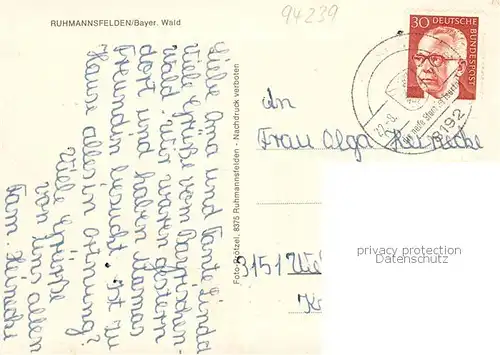 RUHMANNSFELDEN/Bayer. Wald
94239
Liebe Oma und Tante Linda
Viele Grüße vom Bayrischen
wald. Wir waren gestern
dort und haben Mamas
Freundin besucht. Ist zu
Hause alles in Ordnung?
Viele Grüße
von uns allen
Fam.
Foto-Brötzel, 8375 Ruhmannsfelden - Nachdruck verboten
30 DEUTSCHE
BUNDESPOST
8192
An
Frau Olga
3151
privacy protection
Datenschutz